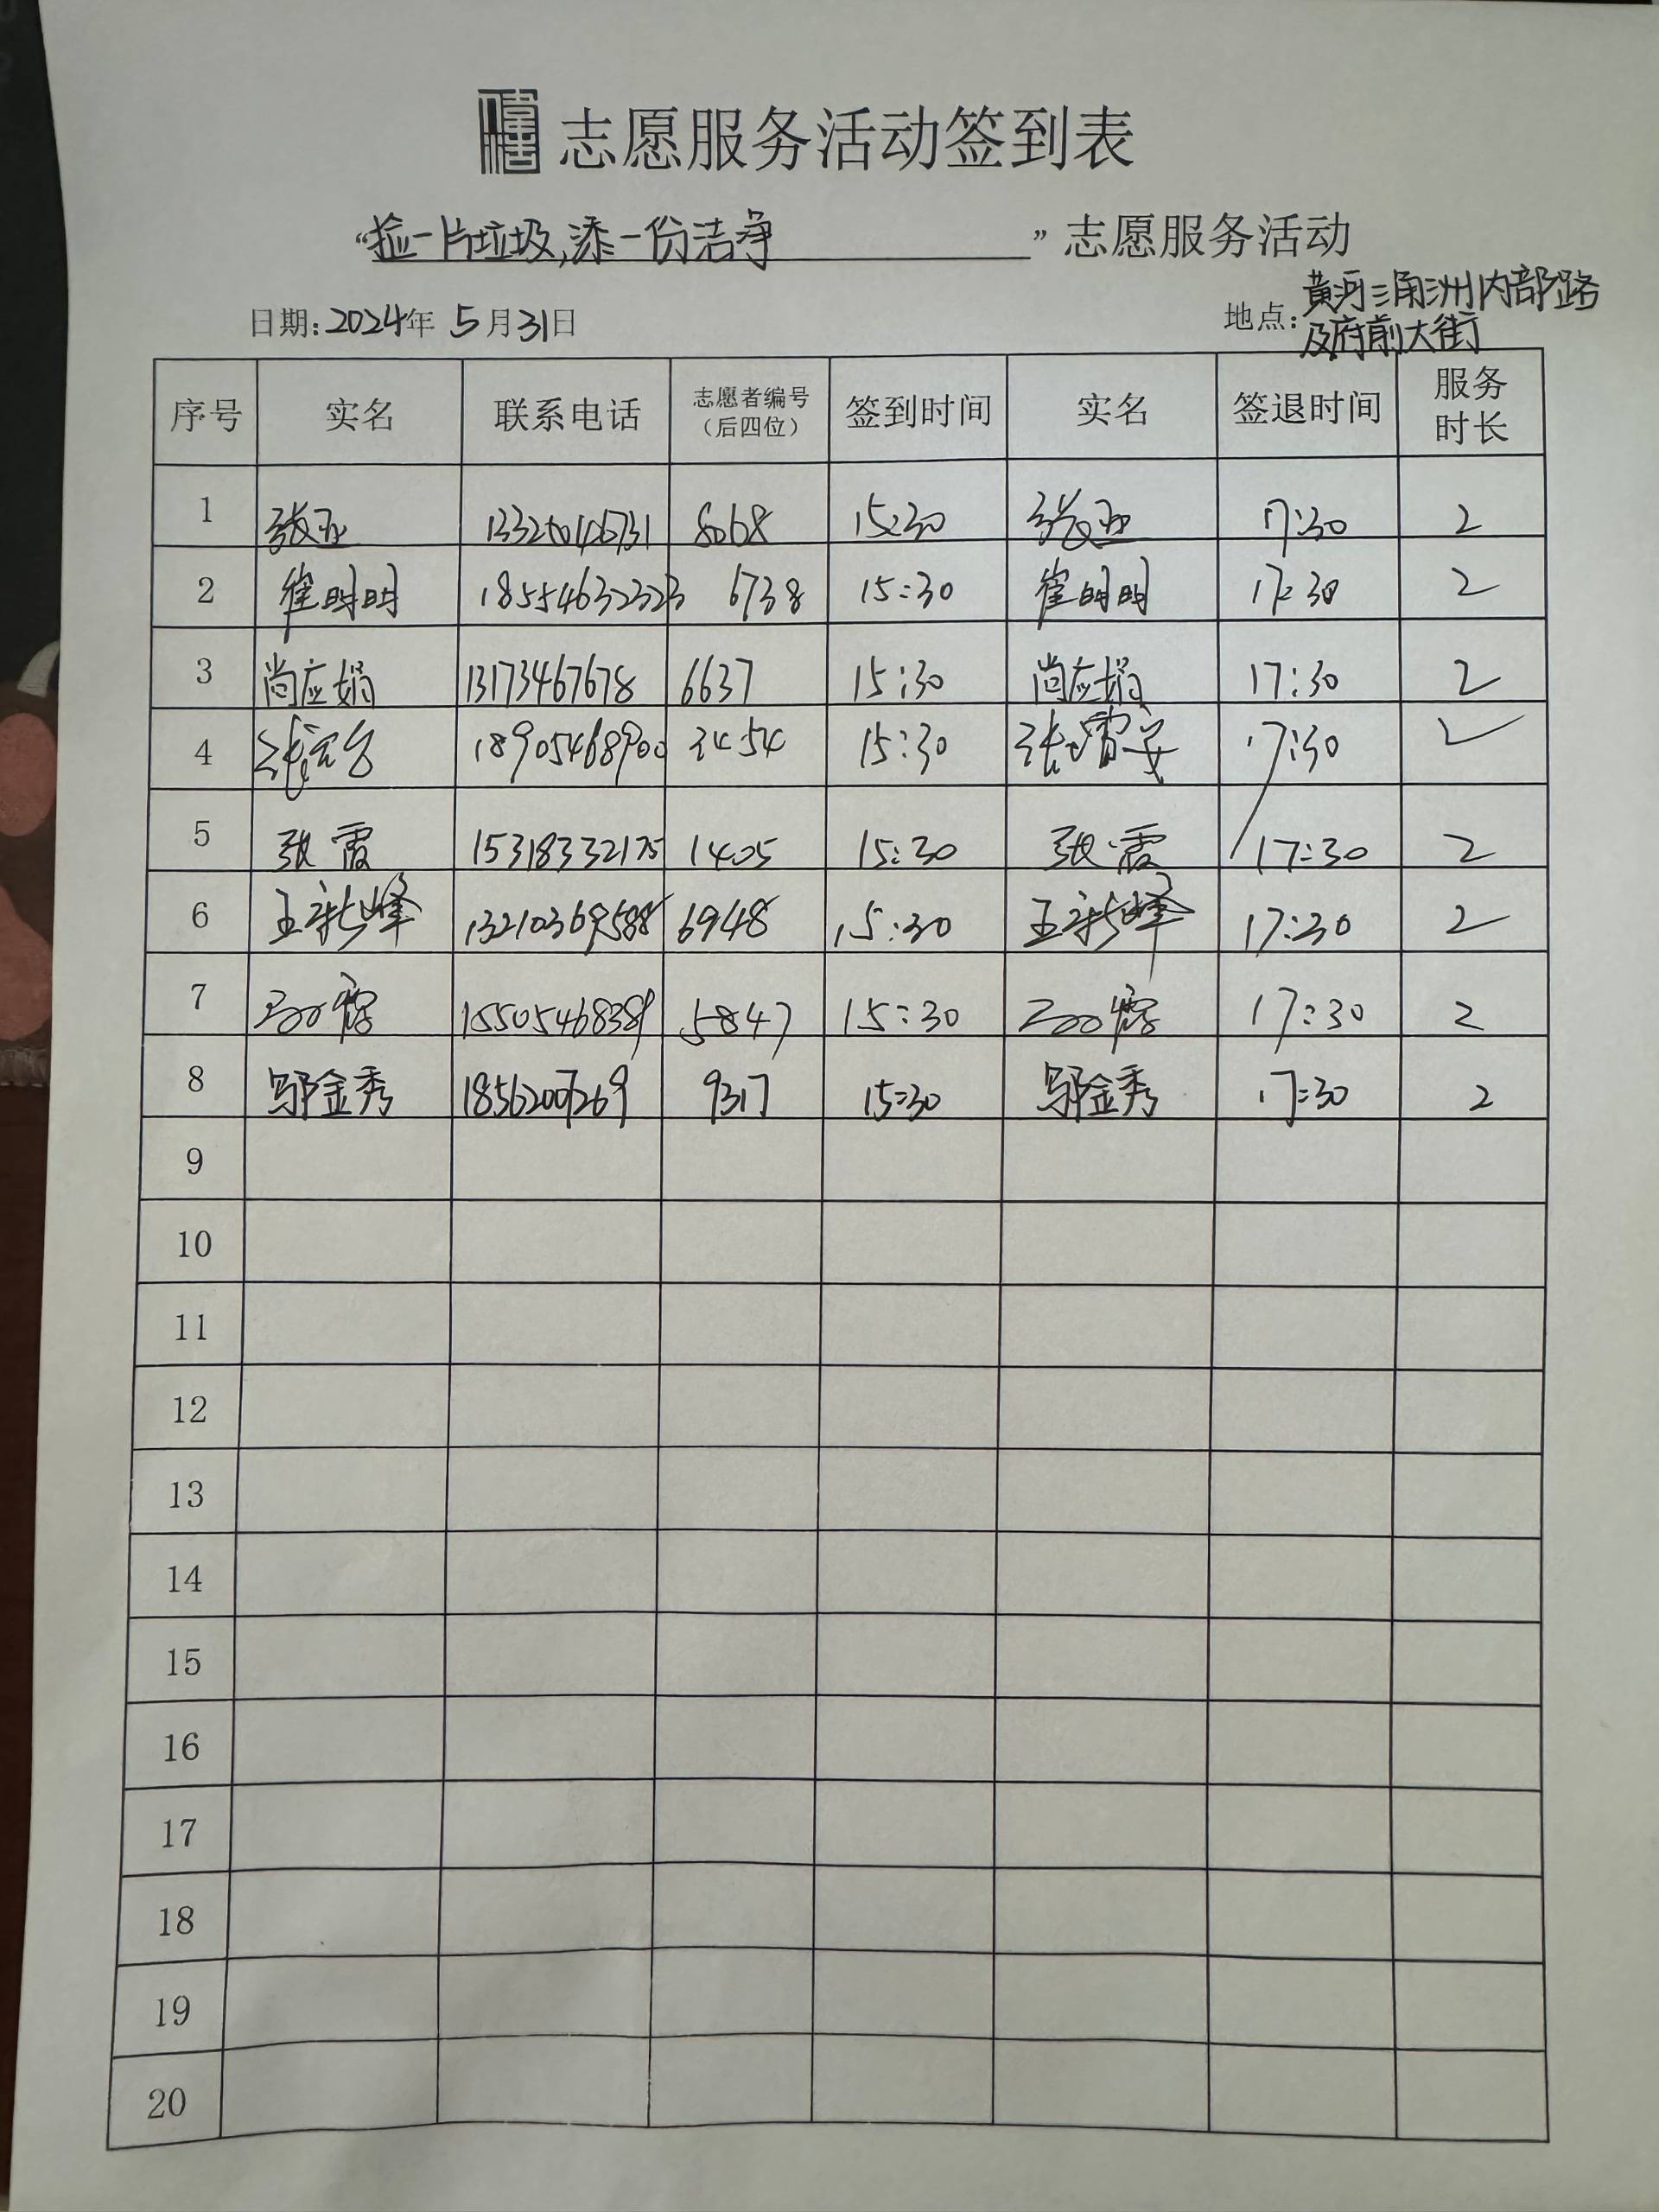 志愿服务活动签到表
“捡一片垃圾,添一份洁净” 志愿服务活动
日期:2024年 5月31日 地点:黄河三角洲内部路
及府前大街
序号 实名 联系电话 志愿者编号（后四位） 签到时间 实名 签退时间 服务时长
1 8068 15:30 17:30 2
2 崔明明 18554632323 6738 15:30 崔明明 17:30 2
3 尚应娟 13173467678 6637 15:30 尚应娟 17:30 2
4 18905468900 2454 15:30 17:30 2
5 张霞 15318332175 1405 15:30 张霞 17:30 2
6 王新峰 13210369588 6948 15:30 王新峰 17:30 2
7 15505468389 5847 15:30 17:30 2
8 邬金秀 18562007269 9317 15:30 邬金秀 17:30 2
9
10
11
12
13
14
15
16
17
18
19
20